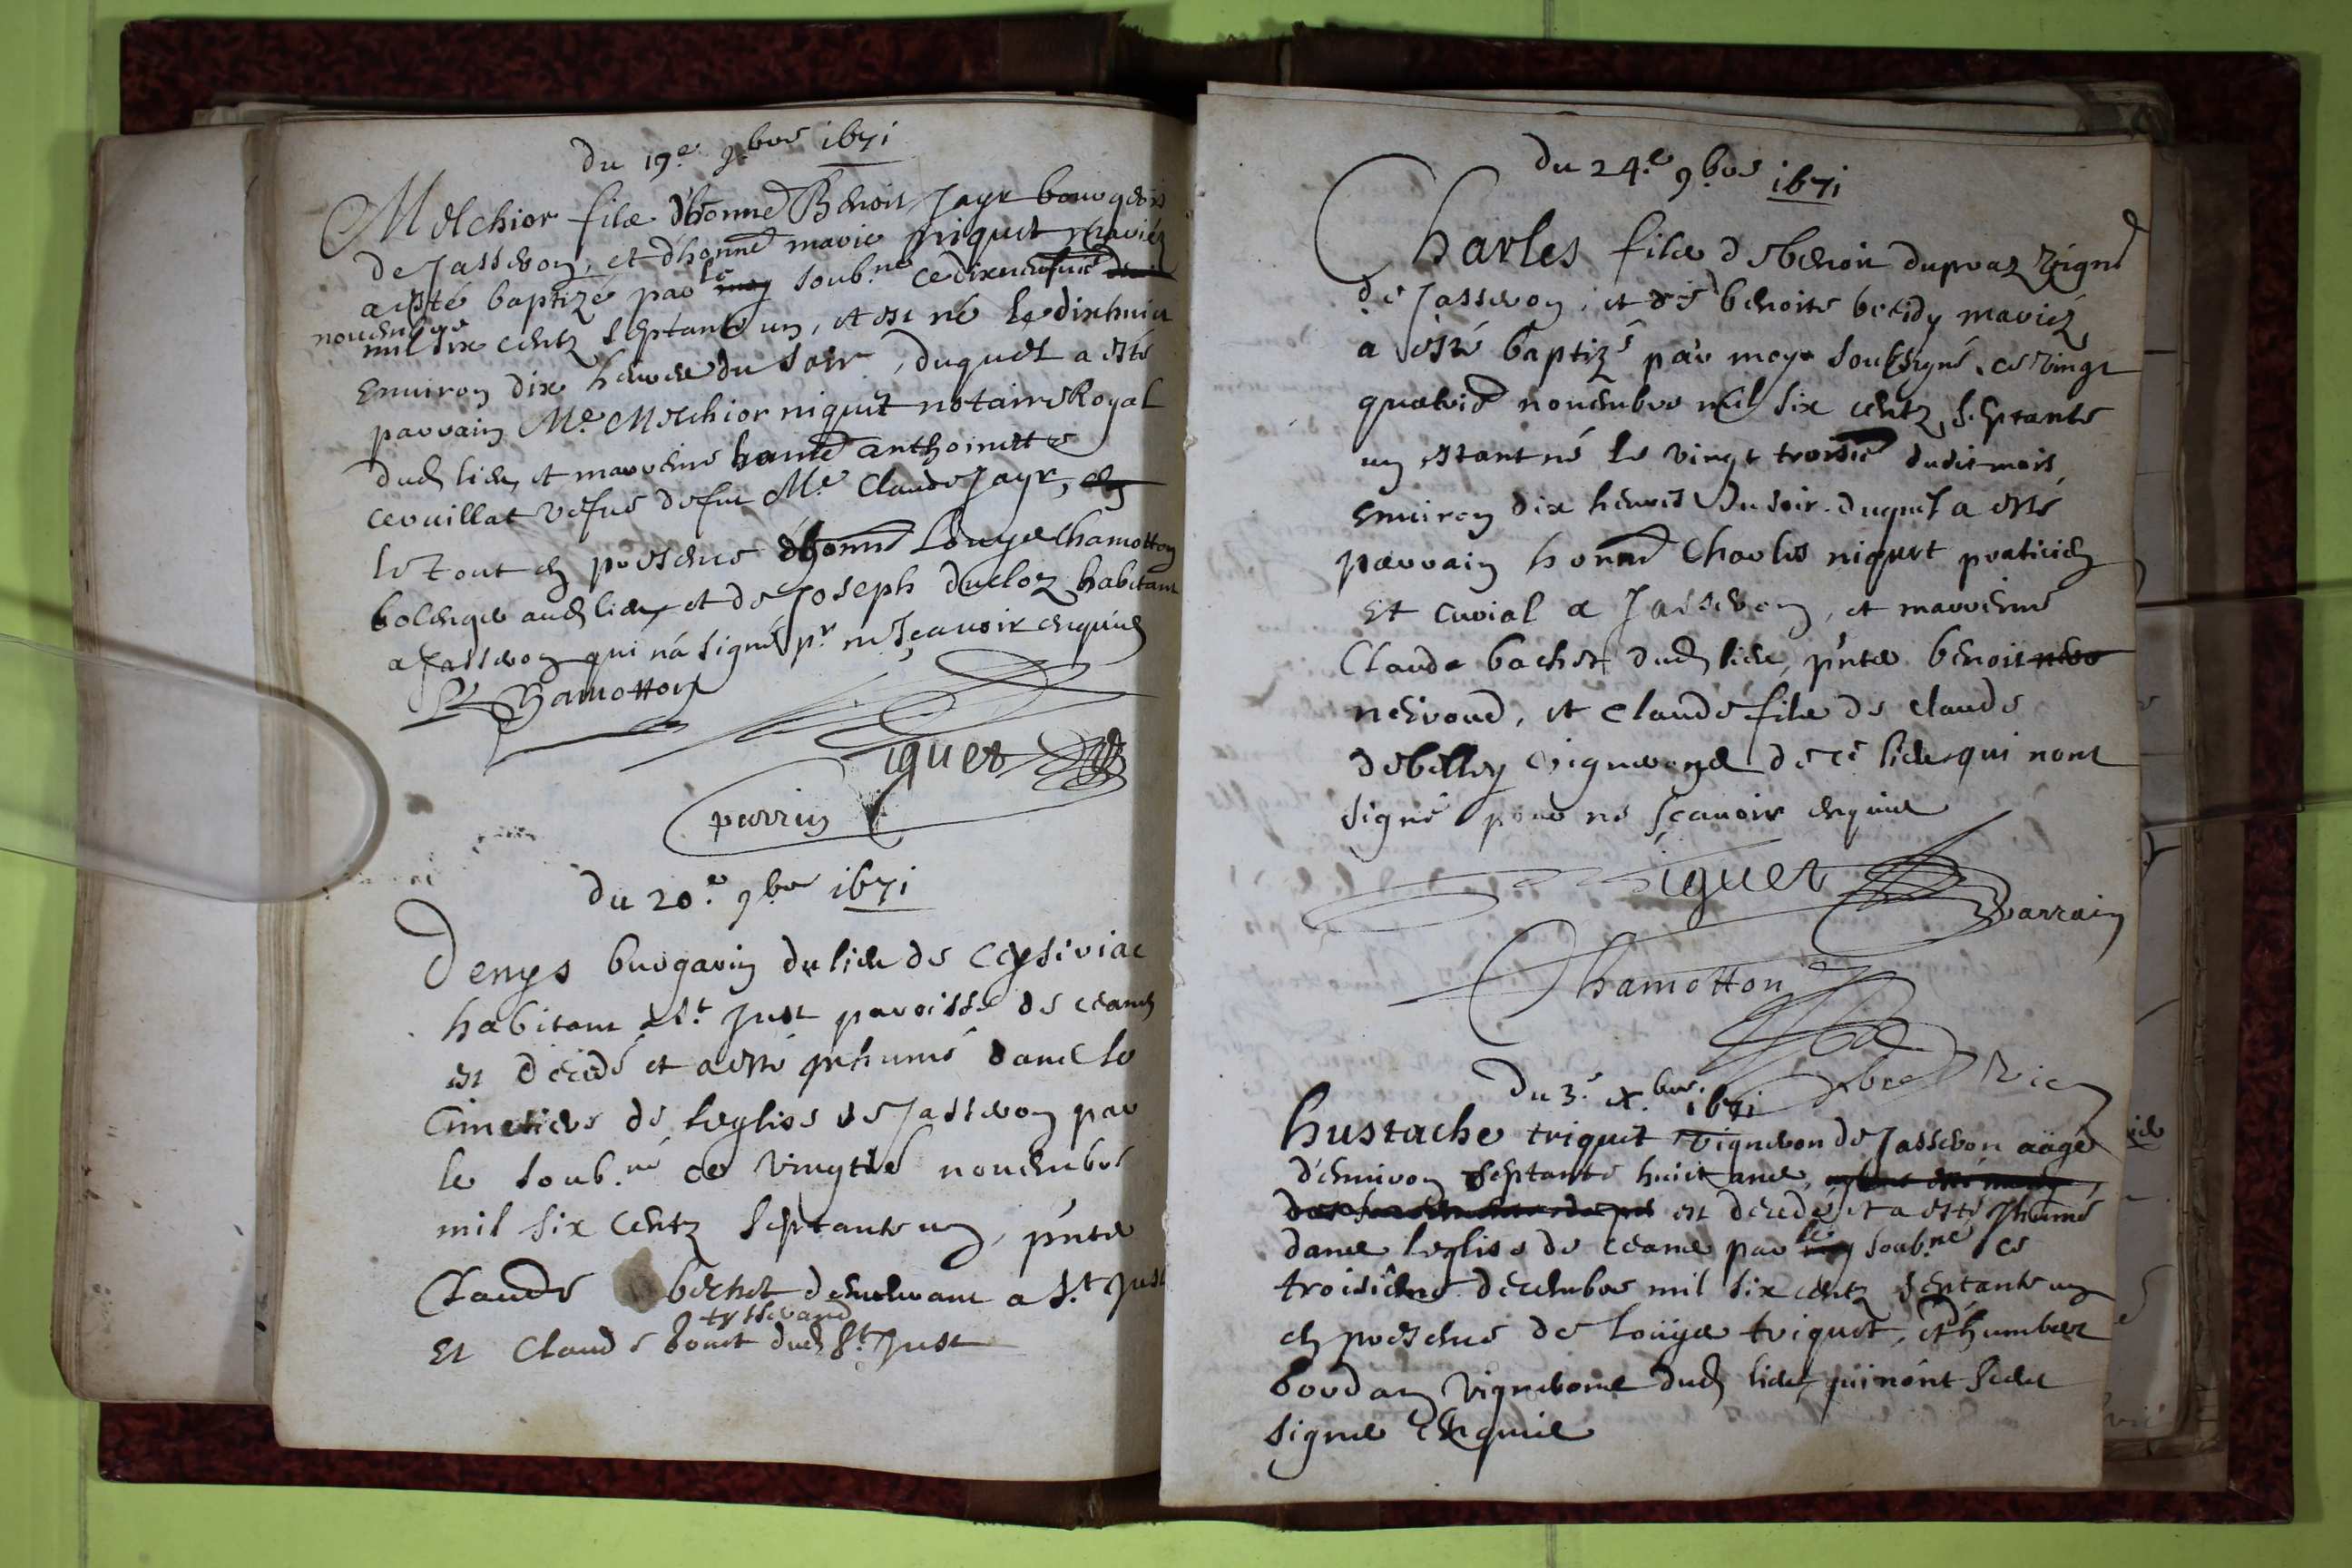 Du 19.e 9.bre 1671
Melchior filz d'honne Benoit Jayr bourgeois
de Jasseron, et d'honne marie niquet mariéz
a esté baptizé par le soub.né ce dixneufuie
nouembre
mil six centz septante un, et est né le dixhuict
enuiron dix heures du soir, duquel a esté
parrain Me. Melchior niquet notaire Royal
dud lieu, et marreine honne anthoinette
ceruillat vefue defut Me Claude Jayr,
le tout en presence d'honne Louys Chamotton
bolenger aud lieu, et de Joseph ducloz habitant
a Jasseron qui n'a signé p.r ne sçauoir enquis
L Chamotton
Niquet
parrin
du 20.e 9.bre 1671
Denys burgarin du lieu de Ceysiriac
habitant a S.t Just paroisse de ceans
est decedé et a esté inhumé dans le
Cimetiere de leglise de Jasseron par
le soub.né ce vingtie nouembre
mil six centz septante un, pnts
Claude bochet demeurant a S.t Just
tisserand
Et Claude bouet dud S.t Just
Du 24.e 9.bre 1671
Charles filz de benoit dupraz vigne
de Jasseron, et de benoite mariéz
a esté baptizé par moy soubsigné, ce vingt
quatrie nouembre mil six centz septante
un estant né le vingt troisie dudit mois
enuiron dix heures du soir. duquel a esté
parrain honne Charles niquet praticien
Et curial a Jasseron, et marreine
Claude bochet dud lieu, pnts benoit
neiroud, et Claude filz de Claude
debelley vignerons de ce lieu qui nont
signé pour ne sçauoir enquis
Niquet
parrain
Chamotton
Vic
Du 3.e x.bre 1671
hustache triquet vigneron de Jasseron aàgé
d'enuiron septante huict ans,
est decedé et a esté Inhumé
dans leglise de ceans par le soub.né ce
troisiéme decembre mil six centz septante un
en presence de loüys triquet, et humbert
bordan vignerons dud lieu, qui nont sceu
signer enquis